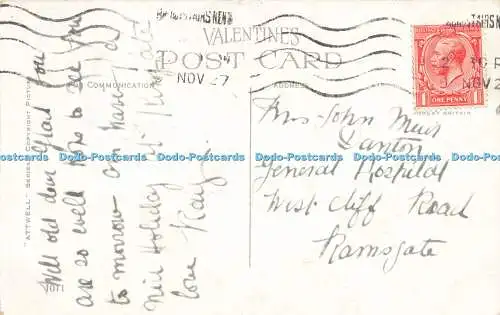 BROADSTAIRS KENT
VALENTINE'S
POST CARD
NOV 27
FOR COMMUNICATION
ADDRESS
ONE PENNY
"ATTWELL" SERIES
COPYRIGHT PICTURE
Well old dear Glad you
are so well Hope to see you
to morrow am having a
nice Holiday at
love Kay
Mrs John Muir
Canton
General Hospital
West Cliff Road
Ramsgate
Dodo-Postcards Dodo-Postcards Dodo-Postcards Dodo-Postcards Dodo-Postcards